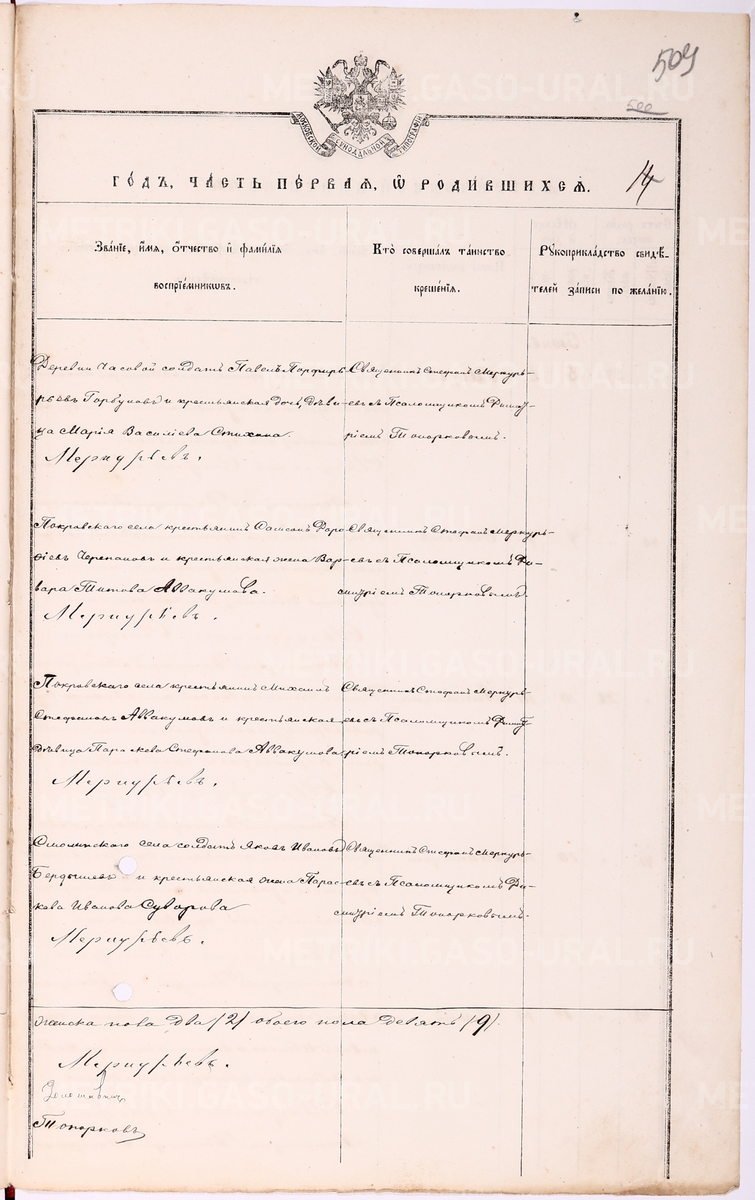 509
500
МОСКОВСКОЙ СѴНОДАЛЬНОЙ ТИПОГРАФІИ
ГО́ДЪ, ЧА́СТЬ ПЕ́РВАЯ, Ѽ РОДИ́ВШИХСЯ.
14
Зва́нїе, и҆́мя, ѻ҆́тчество и҆ фами́лїя
воспрїе́мникѡвъ.
Кто̀ соверша́лъ та́инство
креще́нїя.
Рꙋкоприкла́дство свидѣ́-
телей за́писи по жела́нїю.
Деревни Часовой солдатъ Павелъ Порфирь-
рьевъ Горбуновъ и крестьянская дочь, дѣви-
ца Марія Василіева Стихина.
Меркурьевъ.
Священникъ Стефанъ Меркурь-
евъ съ Псаломщикомъ Димит-
ріемъ Топорковымъ.
Покровскаго села крестьянинъ
Черепановъ и крестьянская жена Вар-
вара Титова Аввакумова.
Меркурьевъ.
Священникъ Стефанъ Меркурь-
евъ съ Псаломщикомъ Ди-
митріемъ Топорковымъ.
Покровскаго села крестьянинъ Михаилъ
Стефановъ Аввакумовъ и крестьянская
дѣвица Параскева Стефанова Аввакумова
Меркурьевъ.
Священникъ Стефанъ Меркурь-
евъ съ Псаломщикомъ Димит-
ріемъ Топорковымъ.
Смолинскаго села солдатъ Яковъ Ивановъ
Бердышевъ и крестьянская жена Парас-
кева Иванова Суворова
Меркурьевъ.
Священникъ Стефанъ Меркурь-
евъ съ Псаломщикомъ Ди-
митріемъ Топорковымъ.
женска пола два (2) обоего пола девять (9).
Меркурьевъ.
Топорковъ
METRIKI.GASO-URAL.RU